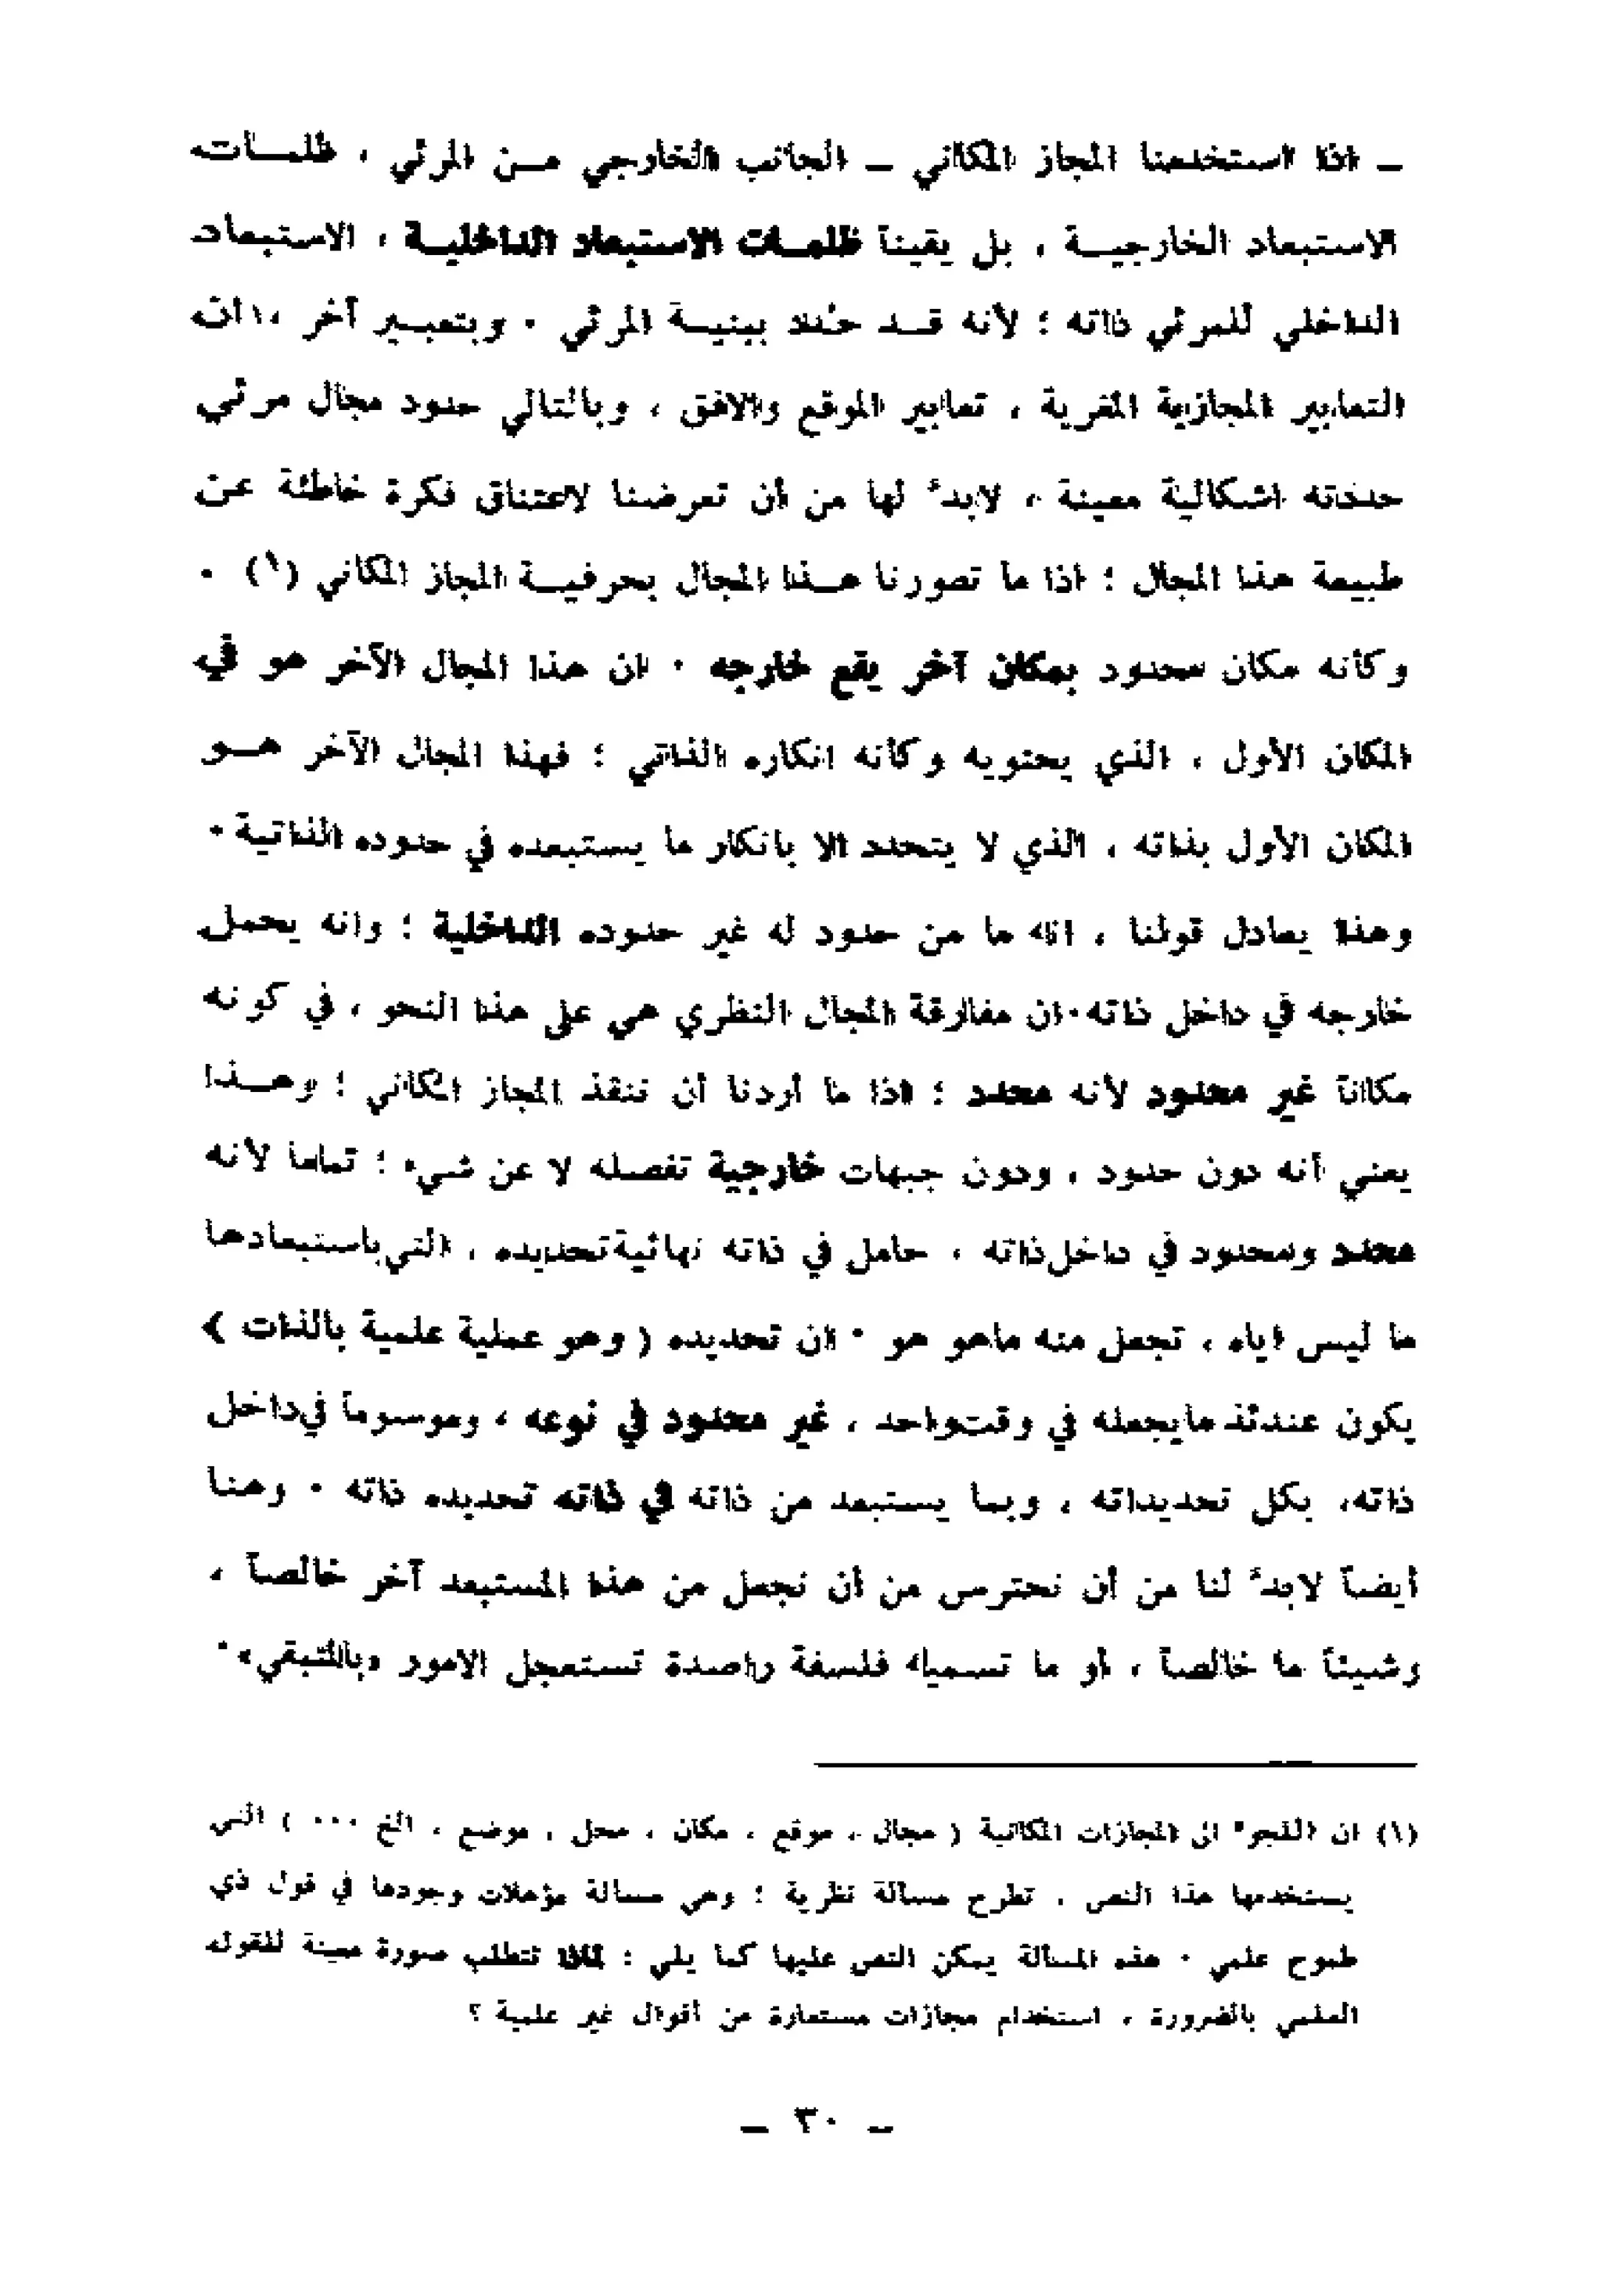 – اذا استخدمنا المجاز المكاني – الجانب الخارجي مـن المرئي ، ظلمـات
الاستبعاد الخارجيـة ، بل يقيناً ظلمـات الاستبعاد الداخليـة ، الاستبعاد
الداخلي للمرئي ذاته ؛ لأنه قـد حُدد ببنيـة المرئي . وبتعبـير آخر ، ان
التعابير المجازية المغرية ، تعابير الموقع والافق ، وبالتالي حدود مجال مرئي
حددته اشكالية معينة ، لابدّ لها من أن تعرضنا لاعتناق فكرة خاطئة عن
طبيعة هذا المجال ؛ اذا ما تصورنا هـذا المجال بحرفيـة المجاز المكاني (١) .
وكأنه مكان محدود بمكان آخر يقع خارجه . ان هذا المجال الآخر هو في
المكان الأول ، الذي يحتويه وكأنه انكاره الذاتي ؛ فهذا المجال الآخر هـو
المكان الأول بذاته ، الذي لا يتحدد الا بانكار ما يستبعده في حدوده الذاتية .
وهذا يعادل قولنا ، انه ما من حدود له غير حدوده الداخلية ؛ وانه يحمل
خارجه في داخل ذاته . ان مفارقة المجال النظري هي على هذا النحو ، في كونه
مكاناً غير محدود لأنه محدد ؛ اذا ما أردنا أن ننقذ المجاز المكاني ؛ وهـذا
يعني أنه دون حدود ، ودون جبهات خارجية تفصله لا عن شيء ؛ تماما لأنه
محدد ومحدود في داخل ذاته ، حامل في ذاته نهائية تحديده ، التي باستبعادها
ما ليس اياه ، تجعل منه ماهو هو . ان تحديده ( وهو عملية علمية بالذات )
يكون عندئذ مايجعله في وقت واحد ، غير محدود في نوعه ، وموسوماً في داخل
ذاته، بكل تحديداته ، وبما يستبعد من ذاته في ذاته تحديده ذاته . وهنا
أيضاً لابدّ لنا من أن نحترس من أن نجعل من هذا المستبعد آخر خالصاً ،
وشيئاً ما خالصاً ، أو ما تسمياه فلسفة راصدة تستعجل الامور «بالمتبقي» .
(١) ان اللجوء الى المجازات المكانية ( مجال ، موقع ، مكان ، محل ، موضع ، الخ ... ) التي
يستخدمها هذا النص ، تطرح مسألة نظرية ؛ وهي مسألة مؤهلات وجودها في قول ذي
طموح علمي . هذه المسألة يمكن النص عليها كما يلي : لماذا تتطلب صورة معينة للقول
العلمي بالضرورة ، استخدام مجازات مستعارة من أقوال غير علمية ؟
– ٣٠ –